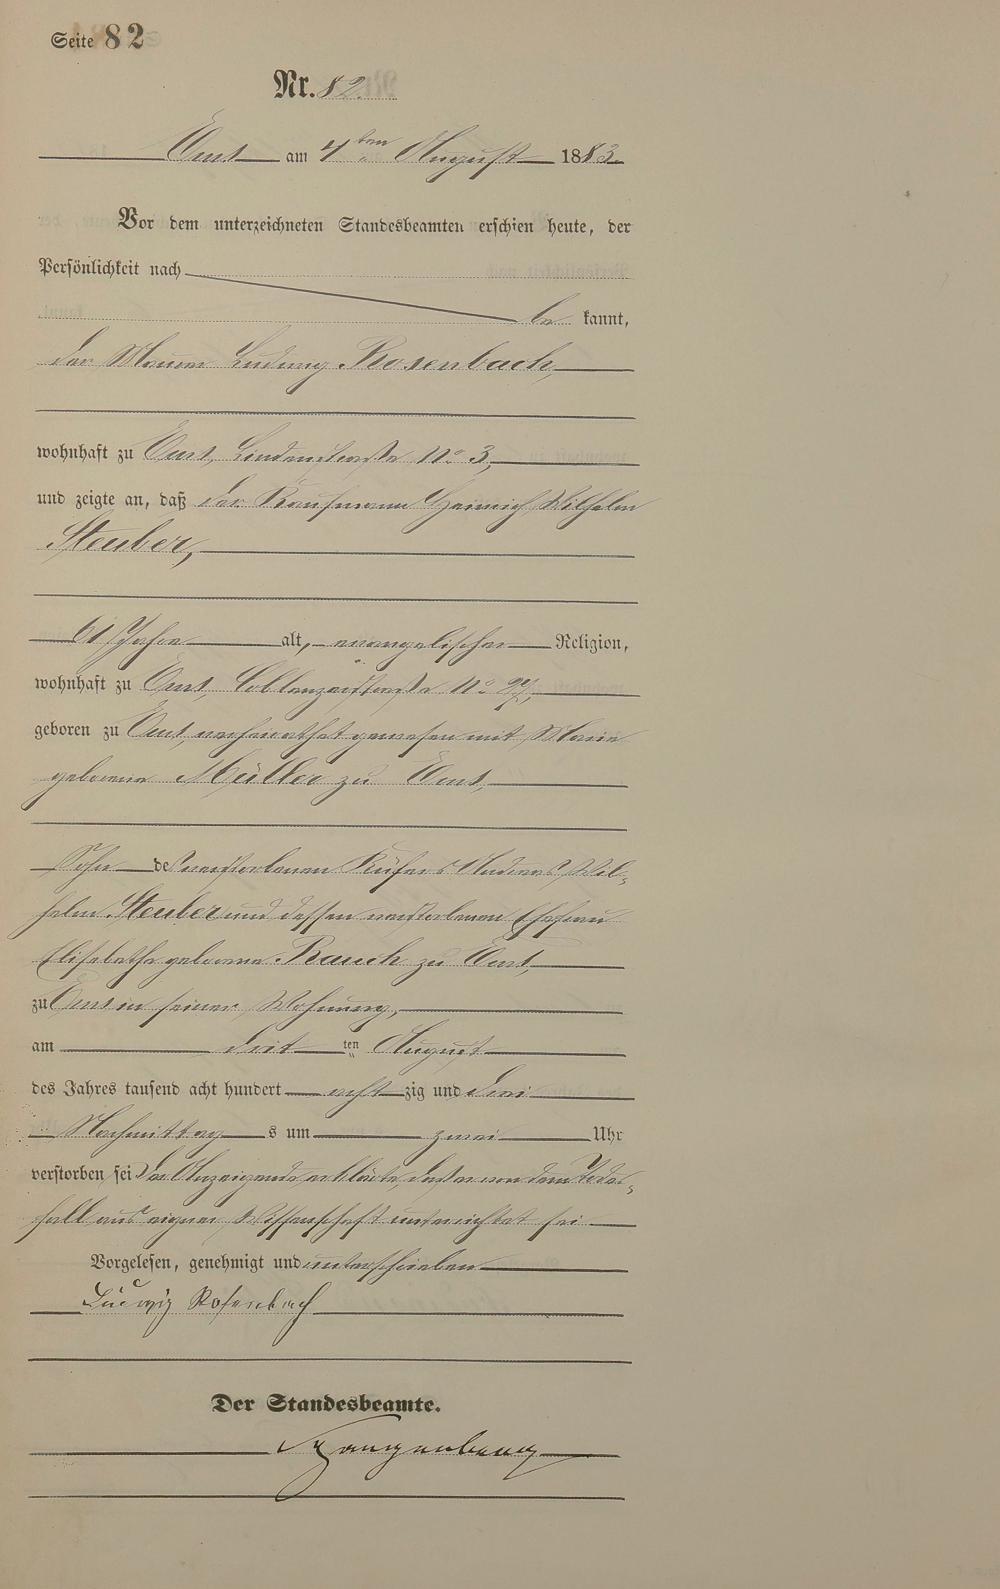 Seite 82
Nr. 82.
Ems am 4ten August 1883.
Vor dem unterzeichneten Standesbeamten erschien heute, der
Persönlichkeit nach
be kannt,
der Maurer Ludwig Rosenbach,
wohnhaft zu Ems, Lindenstraße No 3,
und zeigte an, daß der Kaufmann Heinrich Wilhelm
Steuber,
61 Jahre alt, evangelischer Religion,
wohnhaft zu Ems, Coblenzerstraße No
geboren zu Ems, verheirathet gewesen mit Marie
geborene Müller zu Ems,
Sohn des verstorbenen Küfers Andreas Wil-
helm Steuber und dessen verstorbenen Ehefrau
Elisabethe geborene Rauch zu Ems,
zu Ems in seiner Wohnung,
am drit ten August
des Jahres tausend acht hundert acht zig und drei
Nachmittag s um zwei Uhr
verstorben sei Der Anzeigende erklärte, daß er von dem Todes-
fall aus eigner Wissenschaft unterrichtet sei
Vorgelesen, genehmigt und unterschrieben
Ludwig Rosenbach
Der Standesbeamte.
Spangenberg